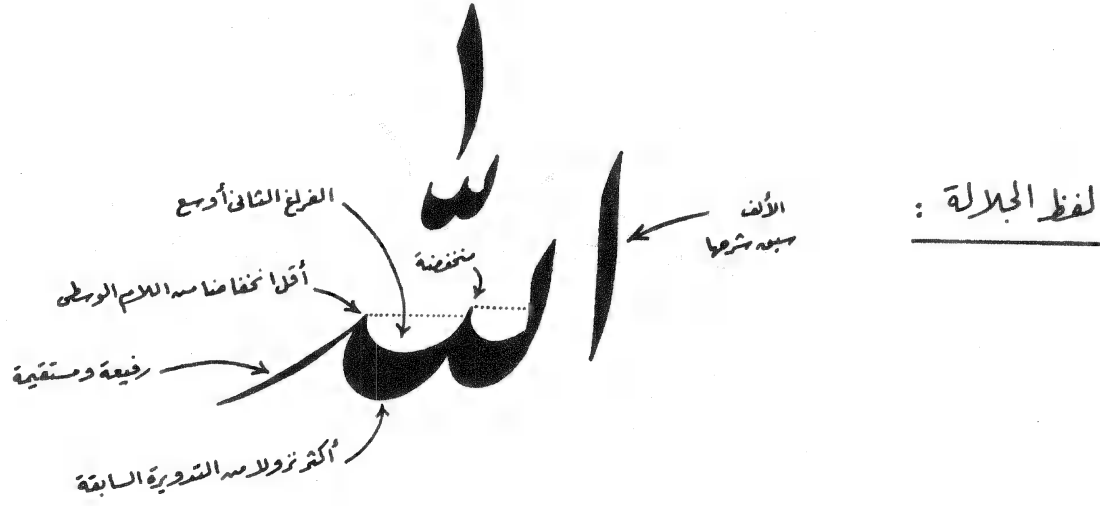 لفظ الجلالة :
الله
الألف
سبق شرحها
منخفضة
الفراغ الثانى أوسع
أقل انخفاضا من اللام الوسطى
رفيعة ومستقيمة
أكثر نزولا من التدويرة السابقة